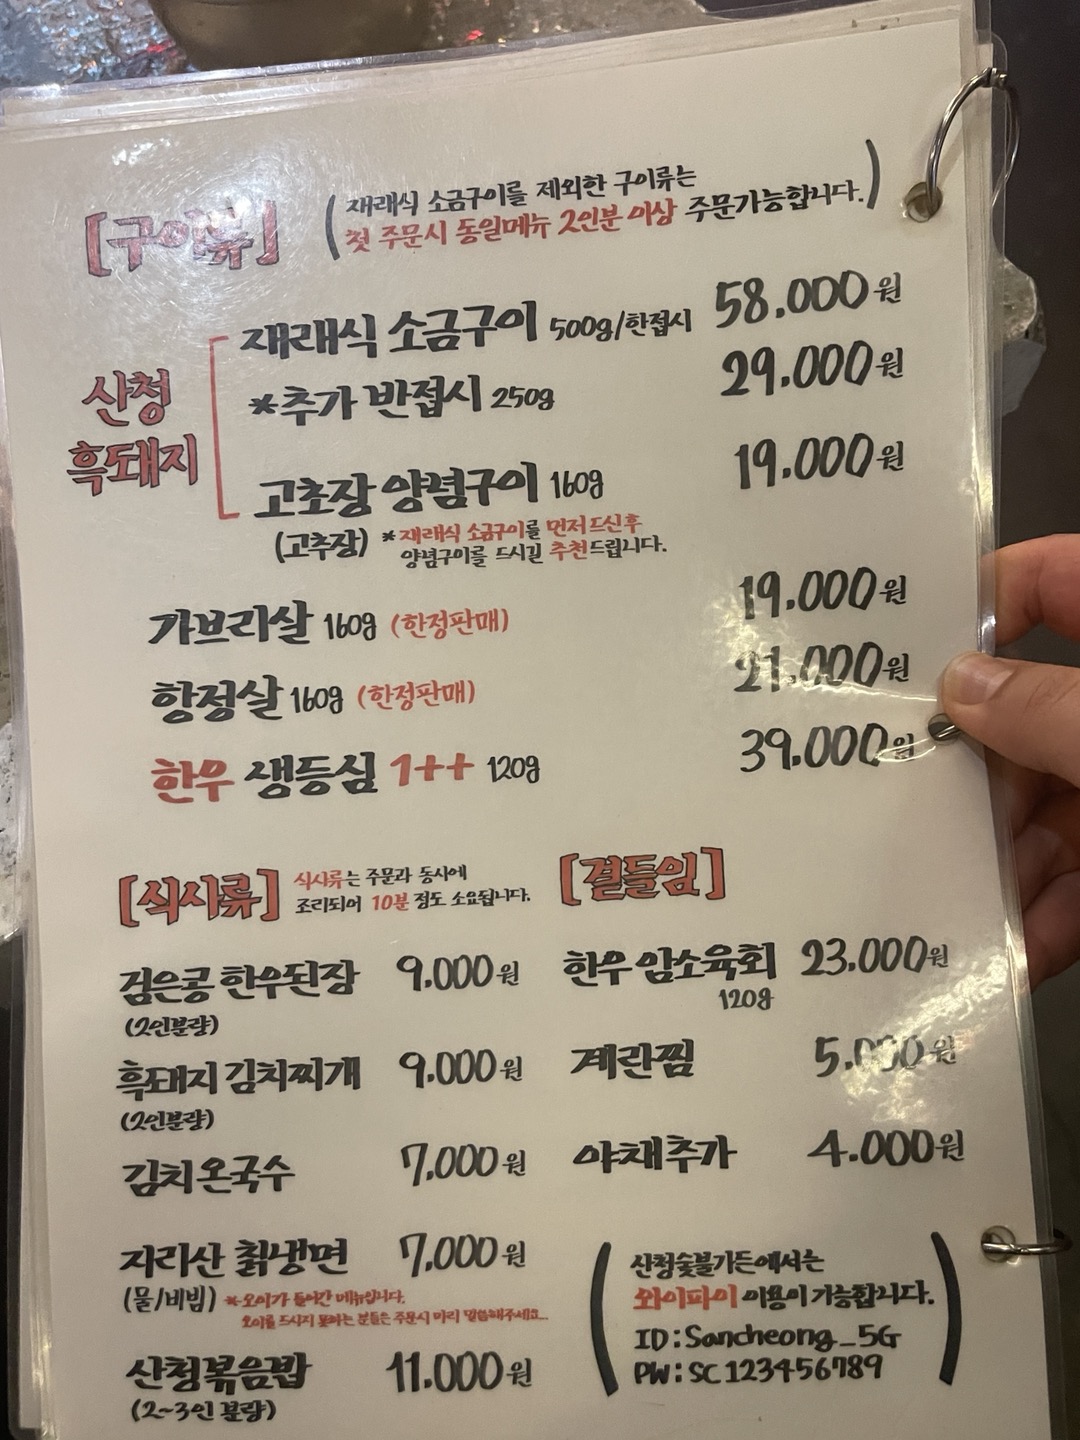 [구이류]
(재래식 소금구이를 제외한 구이류는
첫 주문시 동일메뉴 2인분 이상 주문가능합니다.)
산청
흑돼지
재래식 소금구이 500g/한접시 58.000원
*추가 반접시 250g 29.000원
고초장 양념구이 160g 19.000원
(고추장) *재래식 소금구이를 먼저 드신후
양념구이를 드시길 추천드립니다.
가브리살 160g (한정판매) 19.000원
항정살 160g (한정판매) 21.000원
한우 생등심 1++ 120g 39.000원
[식사류] 식사류는 주문과 동시에
조리되어 10분 정도 소요됩니다.
검은콩 한우된장 9.000원
(2인분량)
흑돼지 김치찌개 9.000원
(2인분량)
김치온국수 7,000원
지리산 칡냉면 7,000원
(물/비빔) *오이가 들어간 메뉴입니다.
오이를 드시지 못하는 분들은 주문시 미리 말씀해주세요.
산청볶음밥 11.000원
(2~3인 분량)
[곁들임]
한우 암소육회 23.000원
120g
계란찜 5.000원
야채추가 4.000원
(산청숯불가든에서는
와이파이 이용이 가능합니다.
ID:Sancheong_5G
PW:SC123456789)